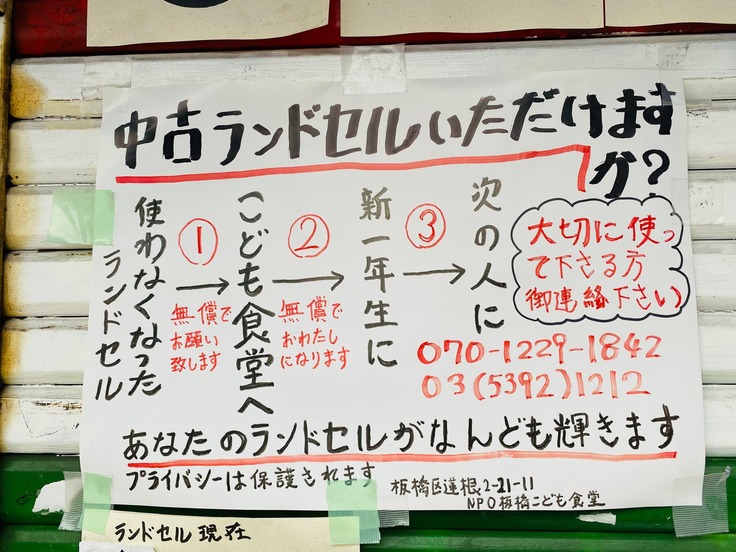 中古ランドセルいただけます
か?
使わなくなった
ランドセル
①
無償で
お願い
致します
こども食堂へ
②
無償で
おわたし
になります
新一年生に
③
次の人に
大切に使っ
て下さる方
御連絡下さい
070-1229-1842
03(5392)1212
あなたのランドセルがなんども輝きます
プライバシーは保護されます
板橋区蓮根2-21-11
NPO板橋こども食堂
ランドセル現在